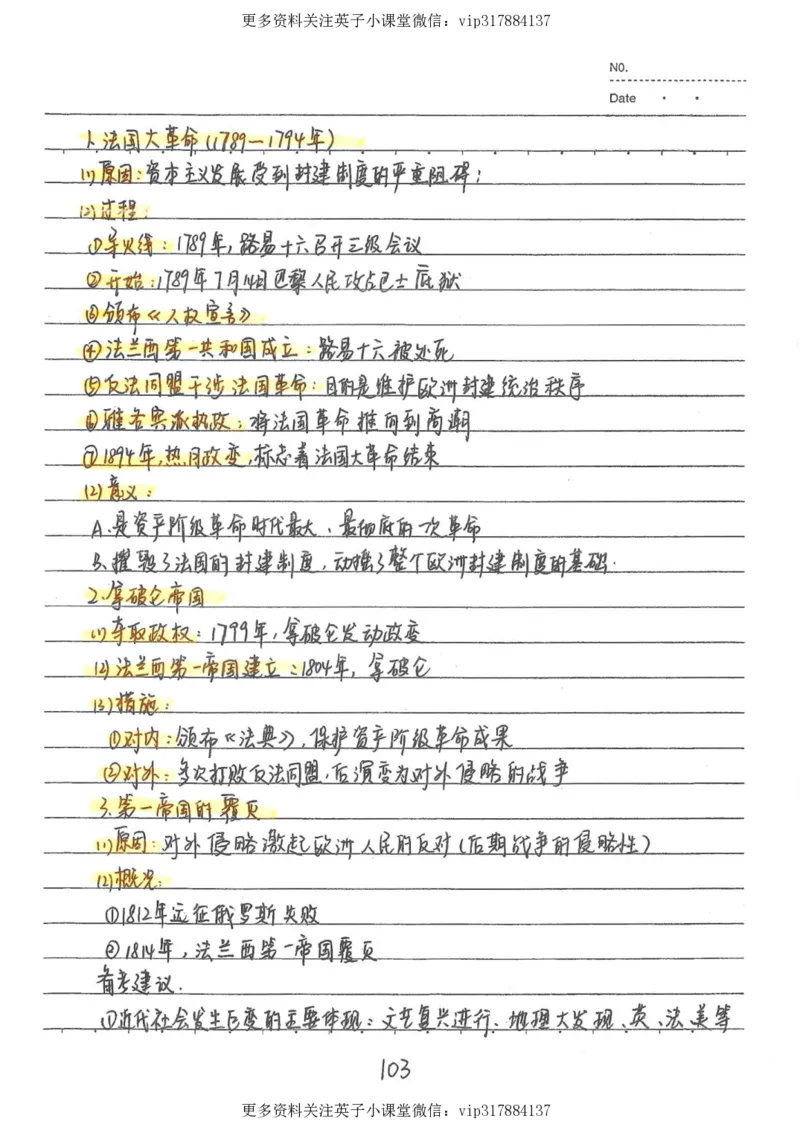 更多资料关注英子小课堂微信：vip317884137
NO.
Date
1.法国大革命(1789—1794年)
(1)原因:资本主义发展受到封建制度的严重阻碍;
(2)过程:
①导火线:1789年,路易十六召开三级会议
②开始:1789年7月14日巴黎人民攻占巴士底狱
③颁布《人权宣言》
④法兰西第一共和国成立:路易十六被处死
⑤反法同盟干涉法国革命:目的是维护欧洲封建统治秩序
⑥雅各宾派执政:将法国革命推向到高潮
⑦1894年,热月政变,标志着法国大革命结束
(2)意义:
A.是资产阶级革命时代最大、最彻底的一次革命
B.摧毁了法国的封建制度,动摇了整个欧洲封建制度的基础.
2.拿破仑帝国
(1)夺取政权:1799年,拿破仑发动政变
(2)法兰西第一帝国建立:1804年,拿破仑
(3)措施:
①对内:颁布《法典》,保护资产阶级革命成果
②对外:多次打败反法同盟,后演变为对外侵略的战争
3.第一帝国的覆灭
(1)原因:对外侵略激起欧洲人民的反对(后期战争的侵略性)
(2)概况:
①1812年远征俄罗斯失败
②1814年,法兰西第一帝国覆灭
备考建议.
①近代社会发生巨变的主要体现:文艺复兴进行、地理大发现、英、法、美等
103
更多资料关注英子小课堂微信：vip317884137